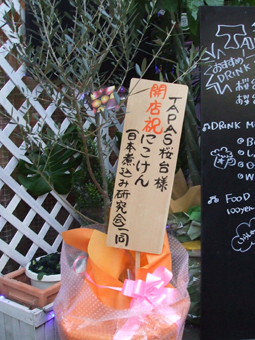 TAPAS桜台様
開店祝
にこけん
(日本煮込み研究会)一同
TA
おすすめ
DRINK
DRINK M
FOOD
100yen